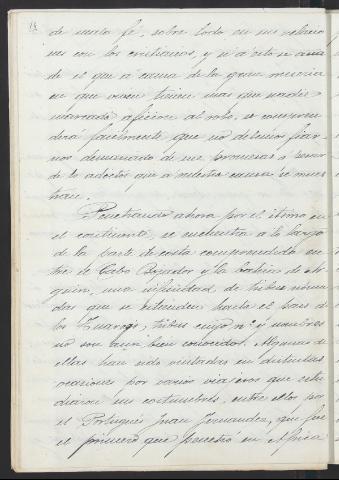 de mala fé, sobre todo en sus relacio
nes con los cristianos, y si a esto se aña
de el que a causa de la gran miseria
en que viven tienen mas que nadie
marcada aficion al robo, se compren
derá facilmente que no debemos fiar
nos demasiado de sus promesas a pesar
de lo adictos que a nuestra causa se mues
tran.
Penetrando ahora por el itsmo en
el continente, se encuentra a lo largo
de la parte de costa comprendida en
tre el Cabo Bojador y la bahia de Ar
guin, una infinidad de tribus noma
das que se estienden hasta el pais de
los Tuaregs, tribus cuyo nº y nombres
no son bien conocidos. Algunas de
ellas han sido visitadas en distintas
ocasiones por varios viajeros que estu
diaron sus costumbres, entre ellos por
el Portugués Juan Fernandez, que fué
el primero que penetró en Africa